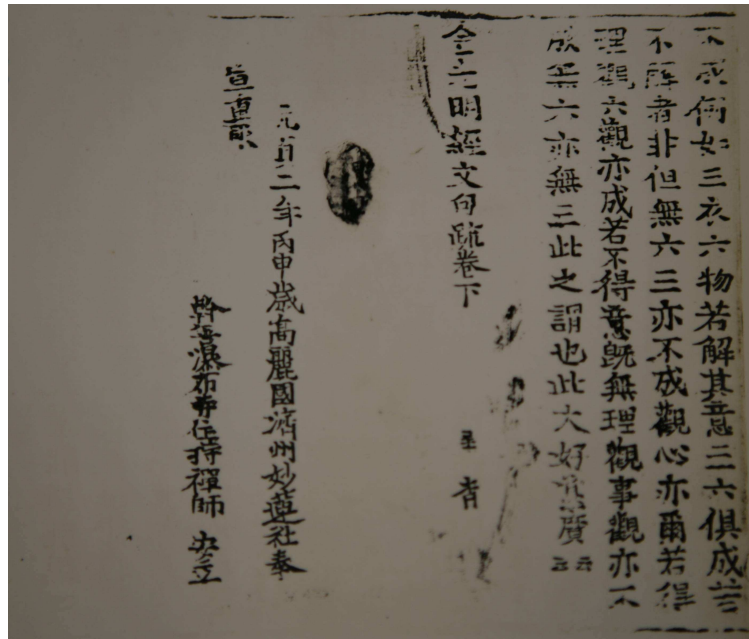 不成例如三衣六物若解其意三六俱成若
不解者非但無六三亦不成觀心亦爾若得
理觀六觀亦成若不得意旣無理觀事觀亦不
成無六亦無三此之謂也此大好意廣云云
金光明經文句疏卷下
元貞二年丙申歲高麗國濟州妙蓮社奉
宣重彫
幹善瀑布寺住持禪師 安立